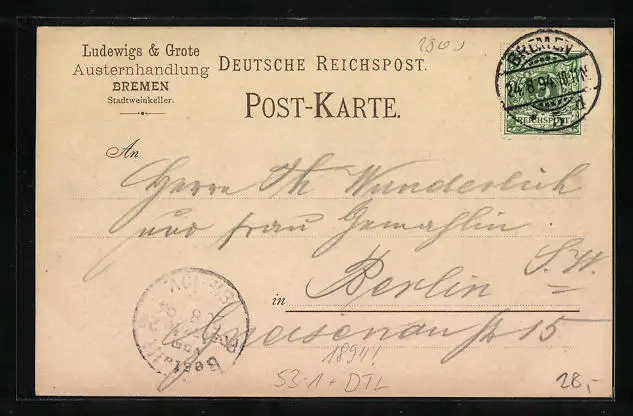 Ludewigs & Grote
Austernhandlung
BREMEN
Stadtweinkeller.
DEUTSCHE REICHSPOST.
POST-KARTE.
2860
BREMEN
24.8.94
REICHSPOST
An
Herrn Th Wunderlich
und frau Gemahlin
S.W.
in Berlin
Gneisenau str 15
Bestellt
vom
Post
1894!
S3-1 + DTL
28,-